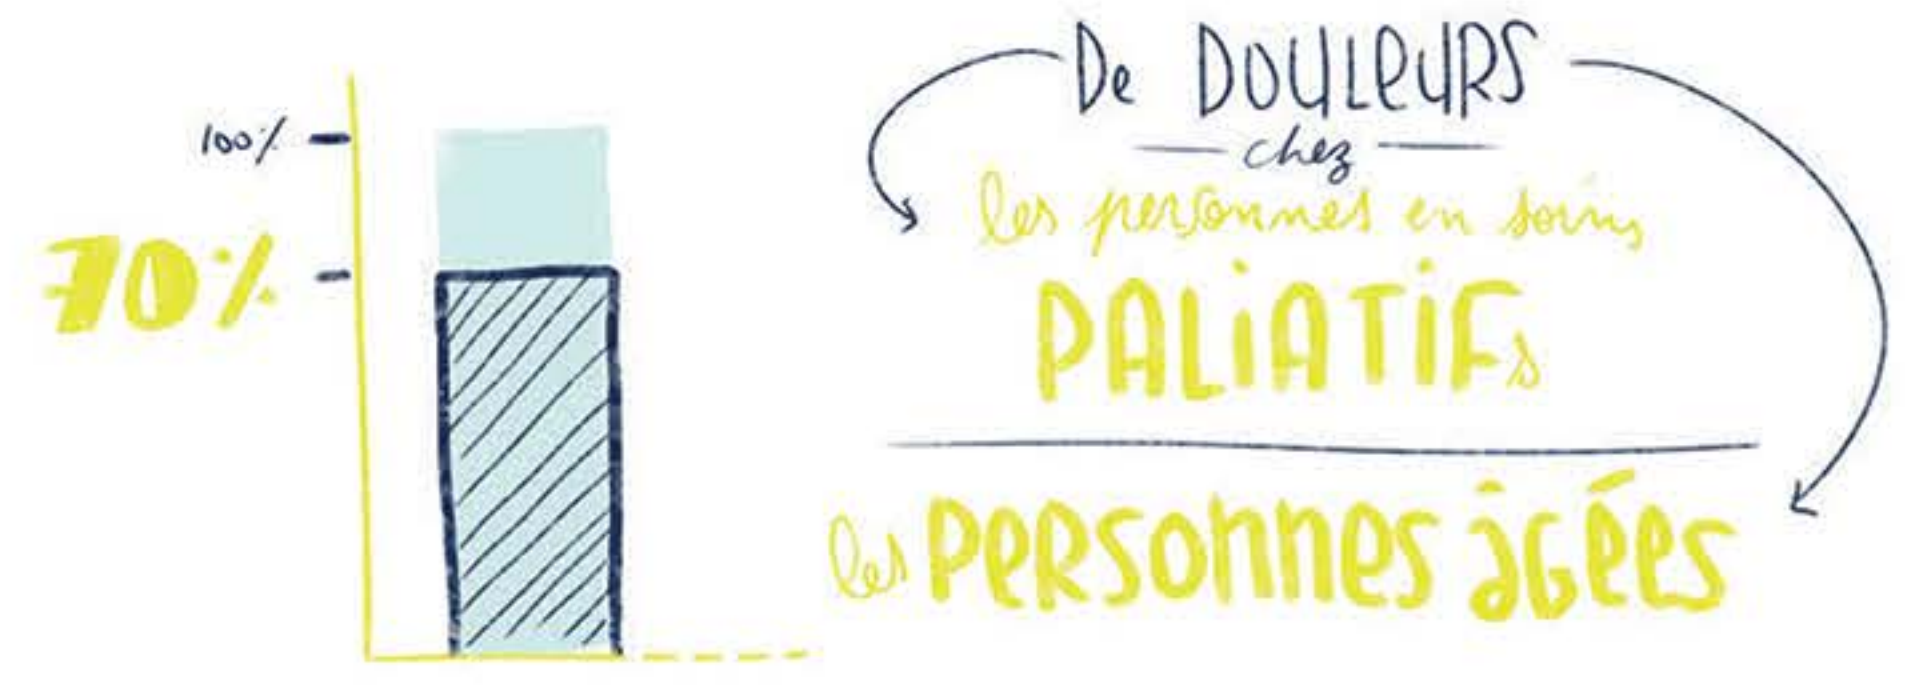 100%
70%
De DOULEURS
chez
les personnes en soins
PALIATIFs
les PERSONNES âGÉES